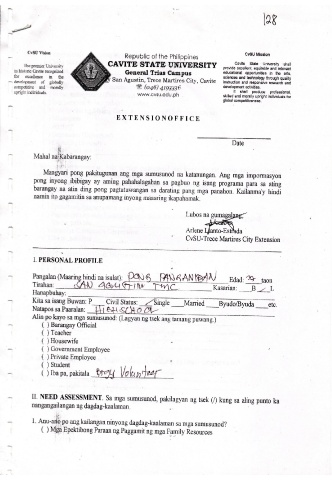 128
CvSU Vision
The premier University in historic Cavite recognized for excellence in the development of globally competitive and morally upright individuals
Republic of the Philippines
CAVITE STATE UNIVERSITY
General Trias Campus
San Agustin, Trece Martires City, Cavite
www.cvsu.edu.ph
CvSU Mission
Cavite State University shall provide excellent, equitable and relevant educational opportunities in the arts, sciences and technology through quality instruction and responsive research and development activities.
It shall produce professional, skilled and morally upright individuals for global competitiveness.
EXTENSION OFFICE
Date
Mahal na Kabarangay:
Mangyari pong pakitugunan ang mga sumusunod na katanungan. Ang mga impormasyon
pong inyong ibibigay ay aming pahahalagahan sa pagbuo ng isang programa para sa ating
barangay sa atin ding pagtatawaran sa darating pang mga panahon. Kailanma'y hindi
namin ito gagamitin sa anupamang inyong maaaring ikapahamak.
Lubos na gumagalang,
Arlene Estrada
CvSU-Trece Martires City Extension
I. PERSONAL PROFILE
Pangalan (Maaring hindi na isulat): DONG PANGANIBAN Edad taon
Tirahan: SAN AGUSTIN TMC Kasarian: B L
Hanapbuhay:
Kita sa isang Buwan: P Civil Status: Single Married Byudo/Byuda etc.
Natapos sa Paaralan: HIGHSCHOOL
Alin po kayo sa mga sumusunod: (Lagyan ng tsek ang tamang puwang.)
( ) Barangay Official
( ) Teacher
( ) Housewife
( ) Government Employee
( ) Private Employee
( ) Student
( ) Iba pa, pakitala Brgy Volunteer
II. NEED ASSESSMENT. Sa mga sumusunod, pakilagyan ng tsek (/) kung sa aling punto ka
nangangailangan ng dagdag-kaalaman.
1. Anu-ano po ang kailangan ninyong dagdag-kaalaman sa mga sumusunod?
( ) Mga Epektibong Paraan ng Paggamit ng mga Family Resources.